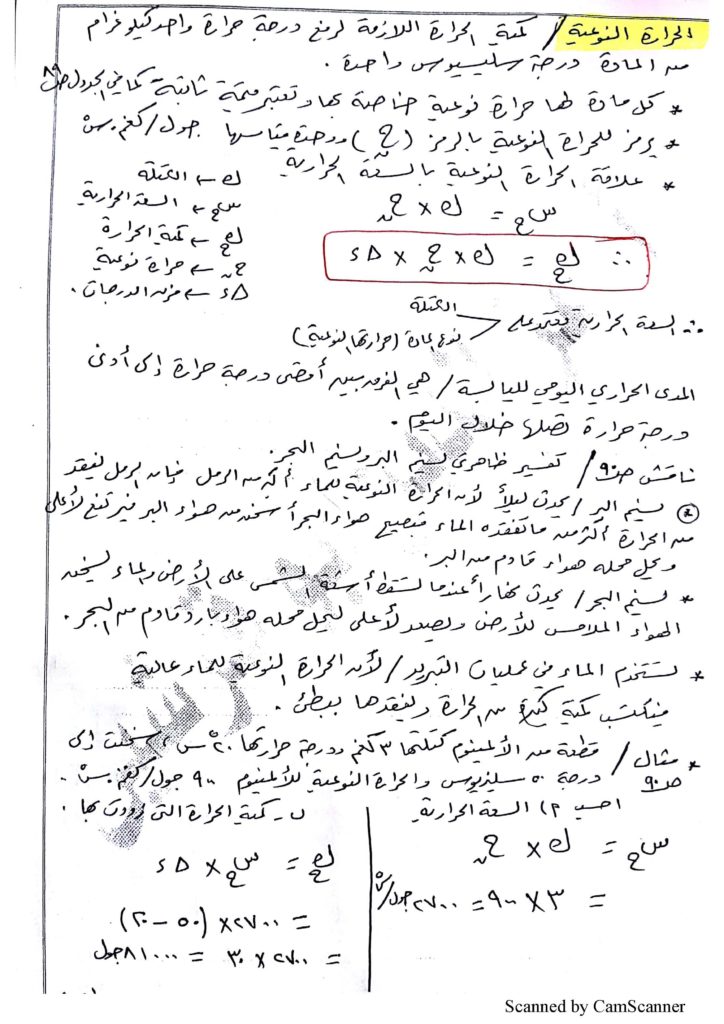 الحرارة النوعية / كمية الحرارة اللازمة لرفع درجة حرارة واحد كيلوغرام
من المادة درجة سليسيوس واحدة .
* كل مادة لها حرارة نوعية خاصة بها وتعتبر قيمة ثابتة كما في الجدول ص٨٩
* يرمز للحرارة النوعية بالرمز (حن) ووحدة قياسها جول/كغم.سْ
* علاقة الحرارة النوعية بالسعة الحرارية
سح = ك × حن
∴ كح = ك × حن × Δد
ك ← الكتلة
سح ← السعة الحرارية
كح ← كمية الحرارة
حن ← حرارة نوعية
Δد ← فرق الدرجات .
∴ السعة الحرارية تعتمد على
الكتلة
نوع المادة (حرارتها النوعية)
المدى الحراري اليومي لليابسة / هي الفرق بين أقصى درجة حرارة إلى أدنى
درجة حرارة تصلها خلال اليوم .
ناقش ص٩٠ / تفسير ظاهرتي نسيم البر ونسيم البحر.
* نسيم البر / يحدث ليلاً لأن الحرارة النوعية للماء أكبر من الرمل فإن الرمل يفقد
من الحرارة أكثر من ما تفقده الماء فيصبح هواء البحر أسخن من هواء البر فيرتفع لأعلى
ويحل محله هواء قادم من البر.
* نسيم البحر / يحدث نهاراً عندما تسقط أشعة الشمس على الأرض والماء ليسخن
الهواء الملامس للأرض ويصعد لأعلى ليحل محله هواء بارد قادم من البحر .
* يستخدم الماء في عمليات التبريد / لأن الحرارة النوعية للماء عالية
فيكتسب كمية كبيرة من الحرارة ويفقدها ببطئ .
* مثال / قطعة من الألمنيوم كتلتها ٣ كغم ودرجة حرارتها ٢٠ْس ، سخنت إلى
ص٩٠ درجة ٥٠ سليزيوس والحرارة النوعية للألمنيوم ٩٠٠ جول/كغم.سْ .
احسب ٢) السعة الحرارية
سح = ك × حن
= ٣ × ٩٠٠ = ٢٧٠٠ جول/سْ
ب- كمية الحرارة التي زودت بها .
كح = سح × Δد
= ٢٧٠٠ × (٥٠ - ٢٠)
= ٢٧٠٠ × ٣٠ = ٨١٠٠٠ جول
Scanned by CamScanner